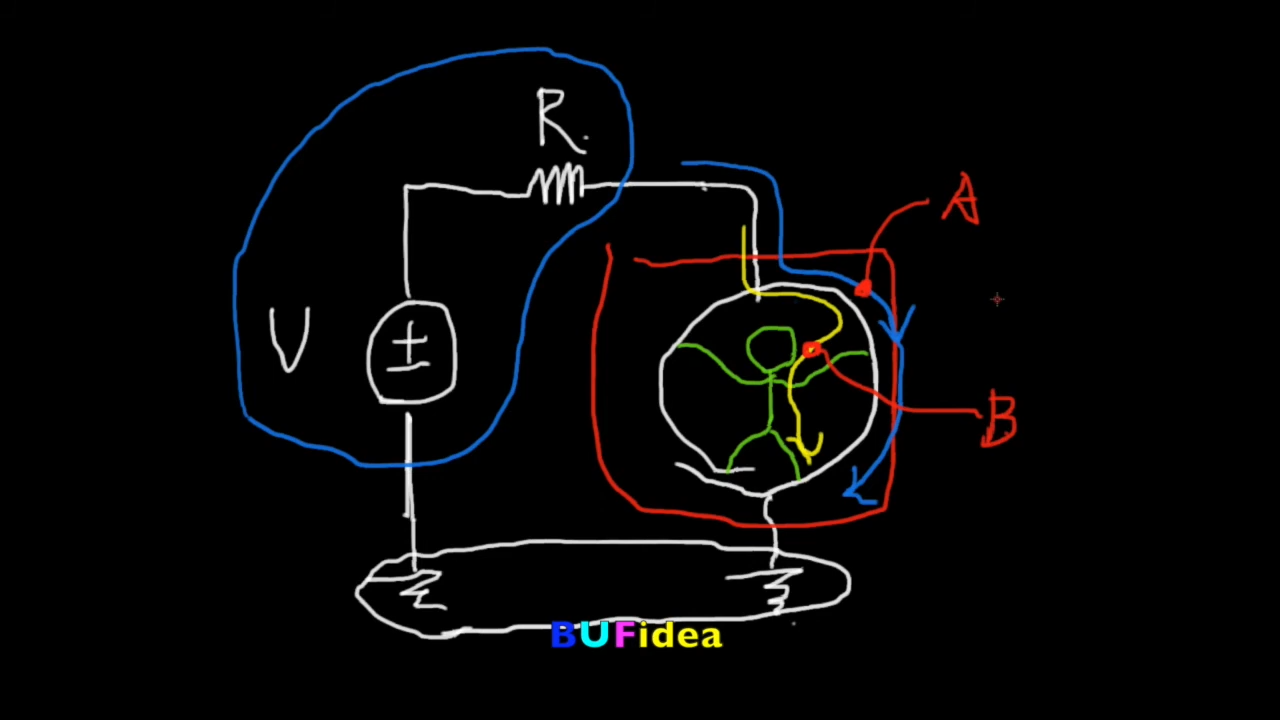 R.
A
V
±
B
BUFidea